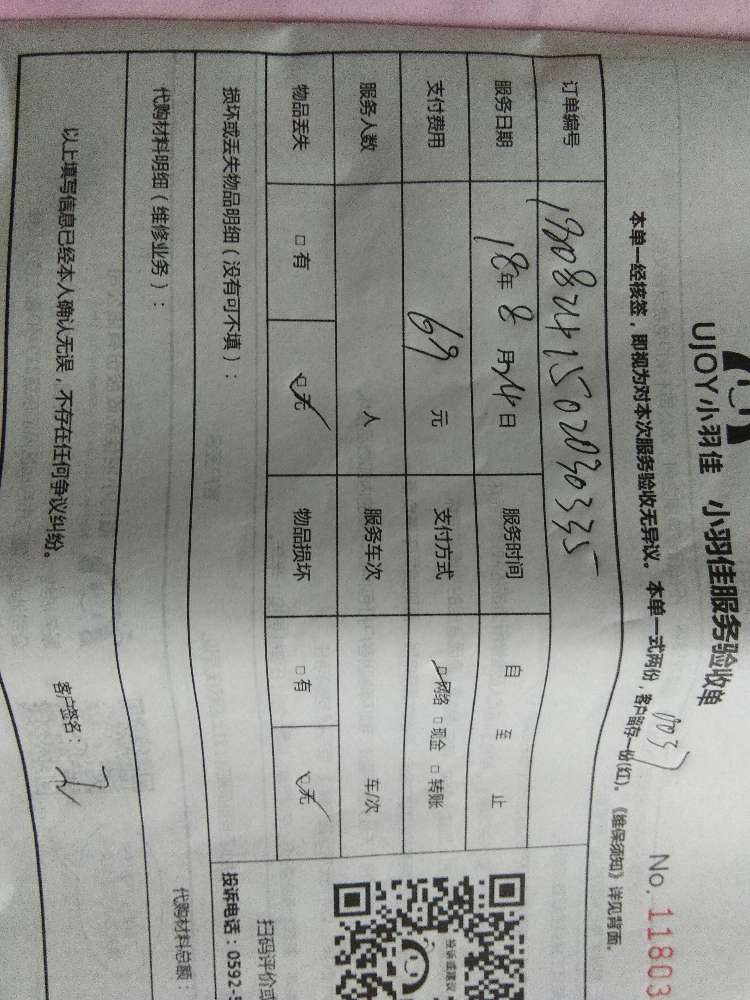 UJOY小羽佳 小羽佳服务验收单
No. 11803
0037
本单一经核签，即视为对本次服务验收无异议。本单一式两份，客户留存一份(红)。《维保须知》详见背面。
订单编号 1808241502030335
服务日期 18年 8月24日 服务时间 自 至 止
支付费用 69 元 支付方式 ☑网络 □现金 □转账
服务人数 人 服务车次 车/次
物品丢失 □有 ☑无 物品损坏 □有 ☑无
损坏或丢失物品明细（没有可不填）：
代购材料明细（维修业务）：
代购材料总额：
以上填写信息已经本人确认无误，不存在任何争议纠纷。
客户签名：
投诉或建议
扫码评价或
投诉电话：0592-5